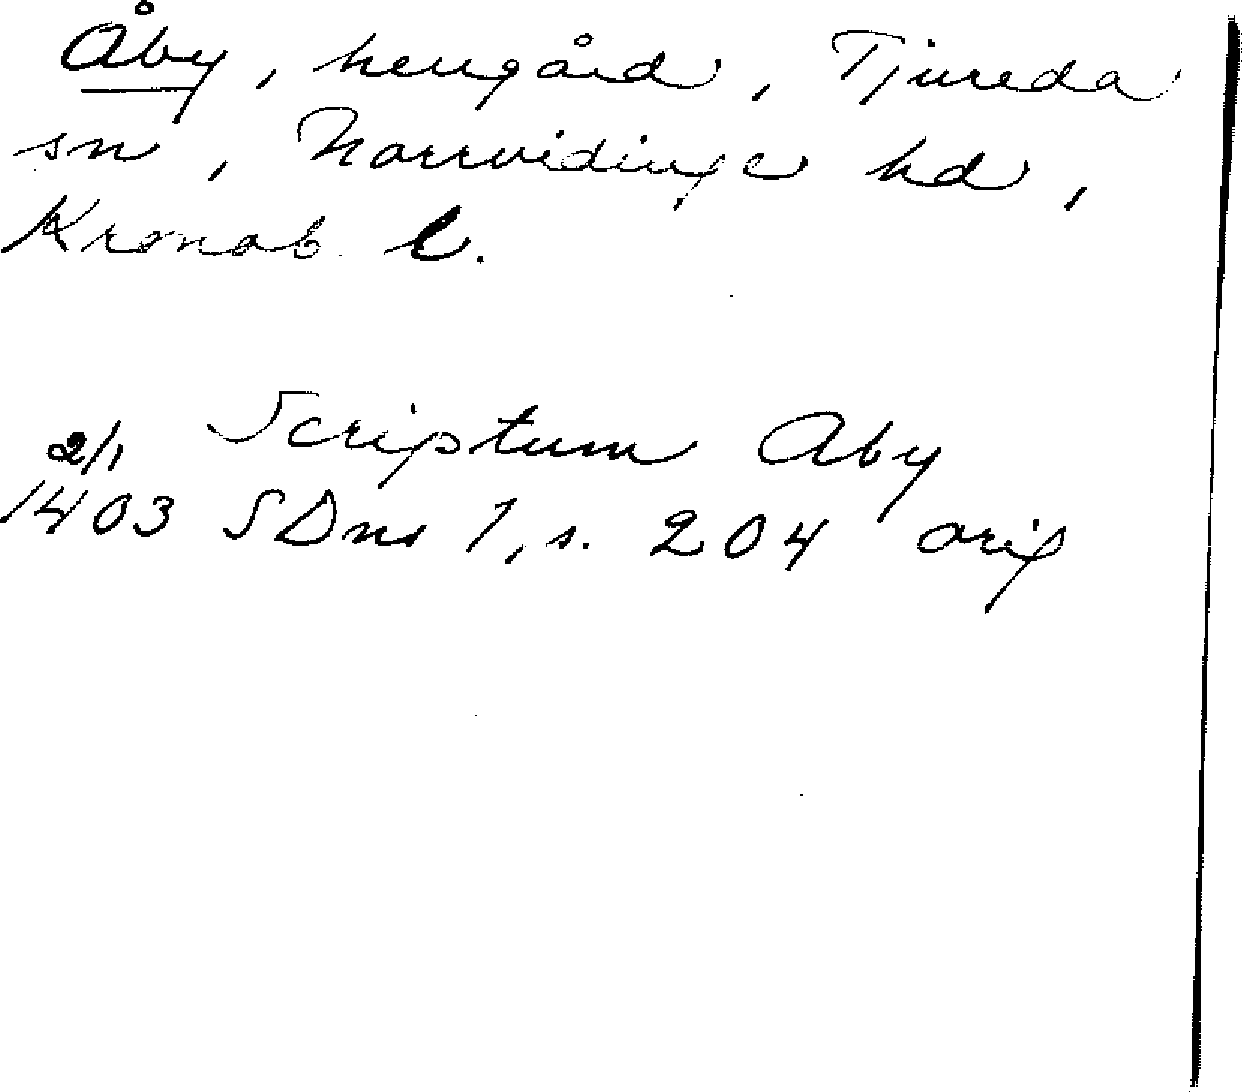 Åby, herrgård, Tjureda
sn, Norrvidinge hd,
Kronob. l.
2/1 Scriptum Aby
1403 SDns 1, s. 204 orig